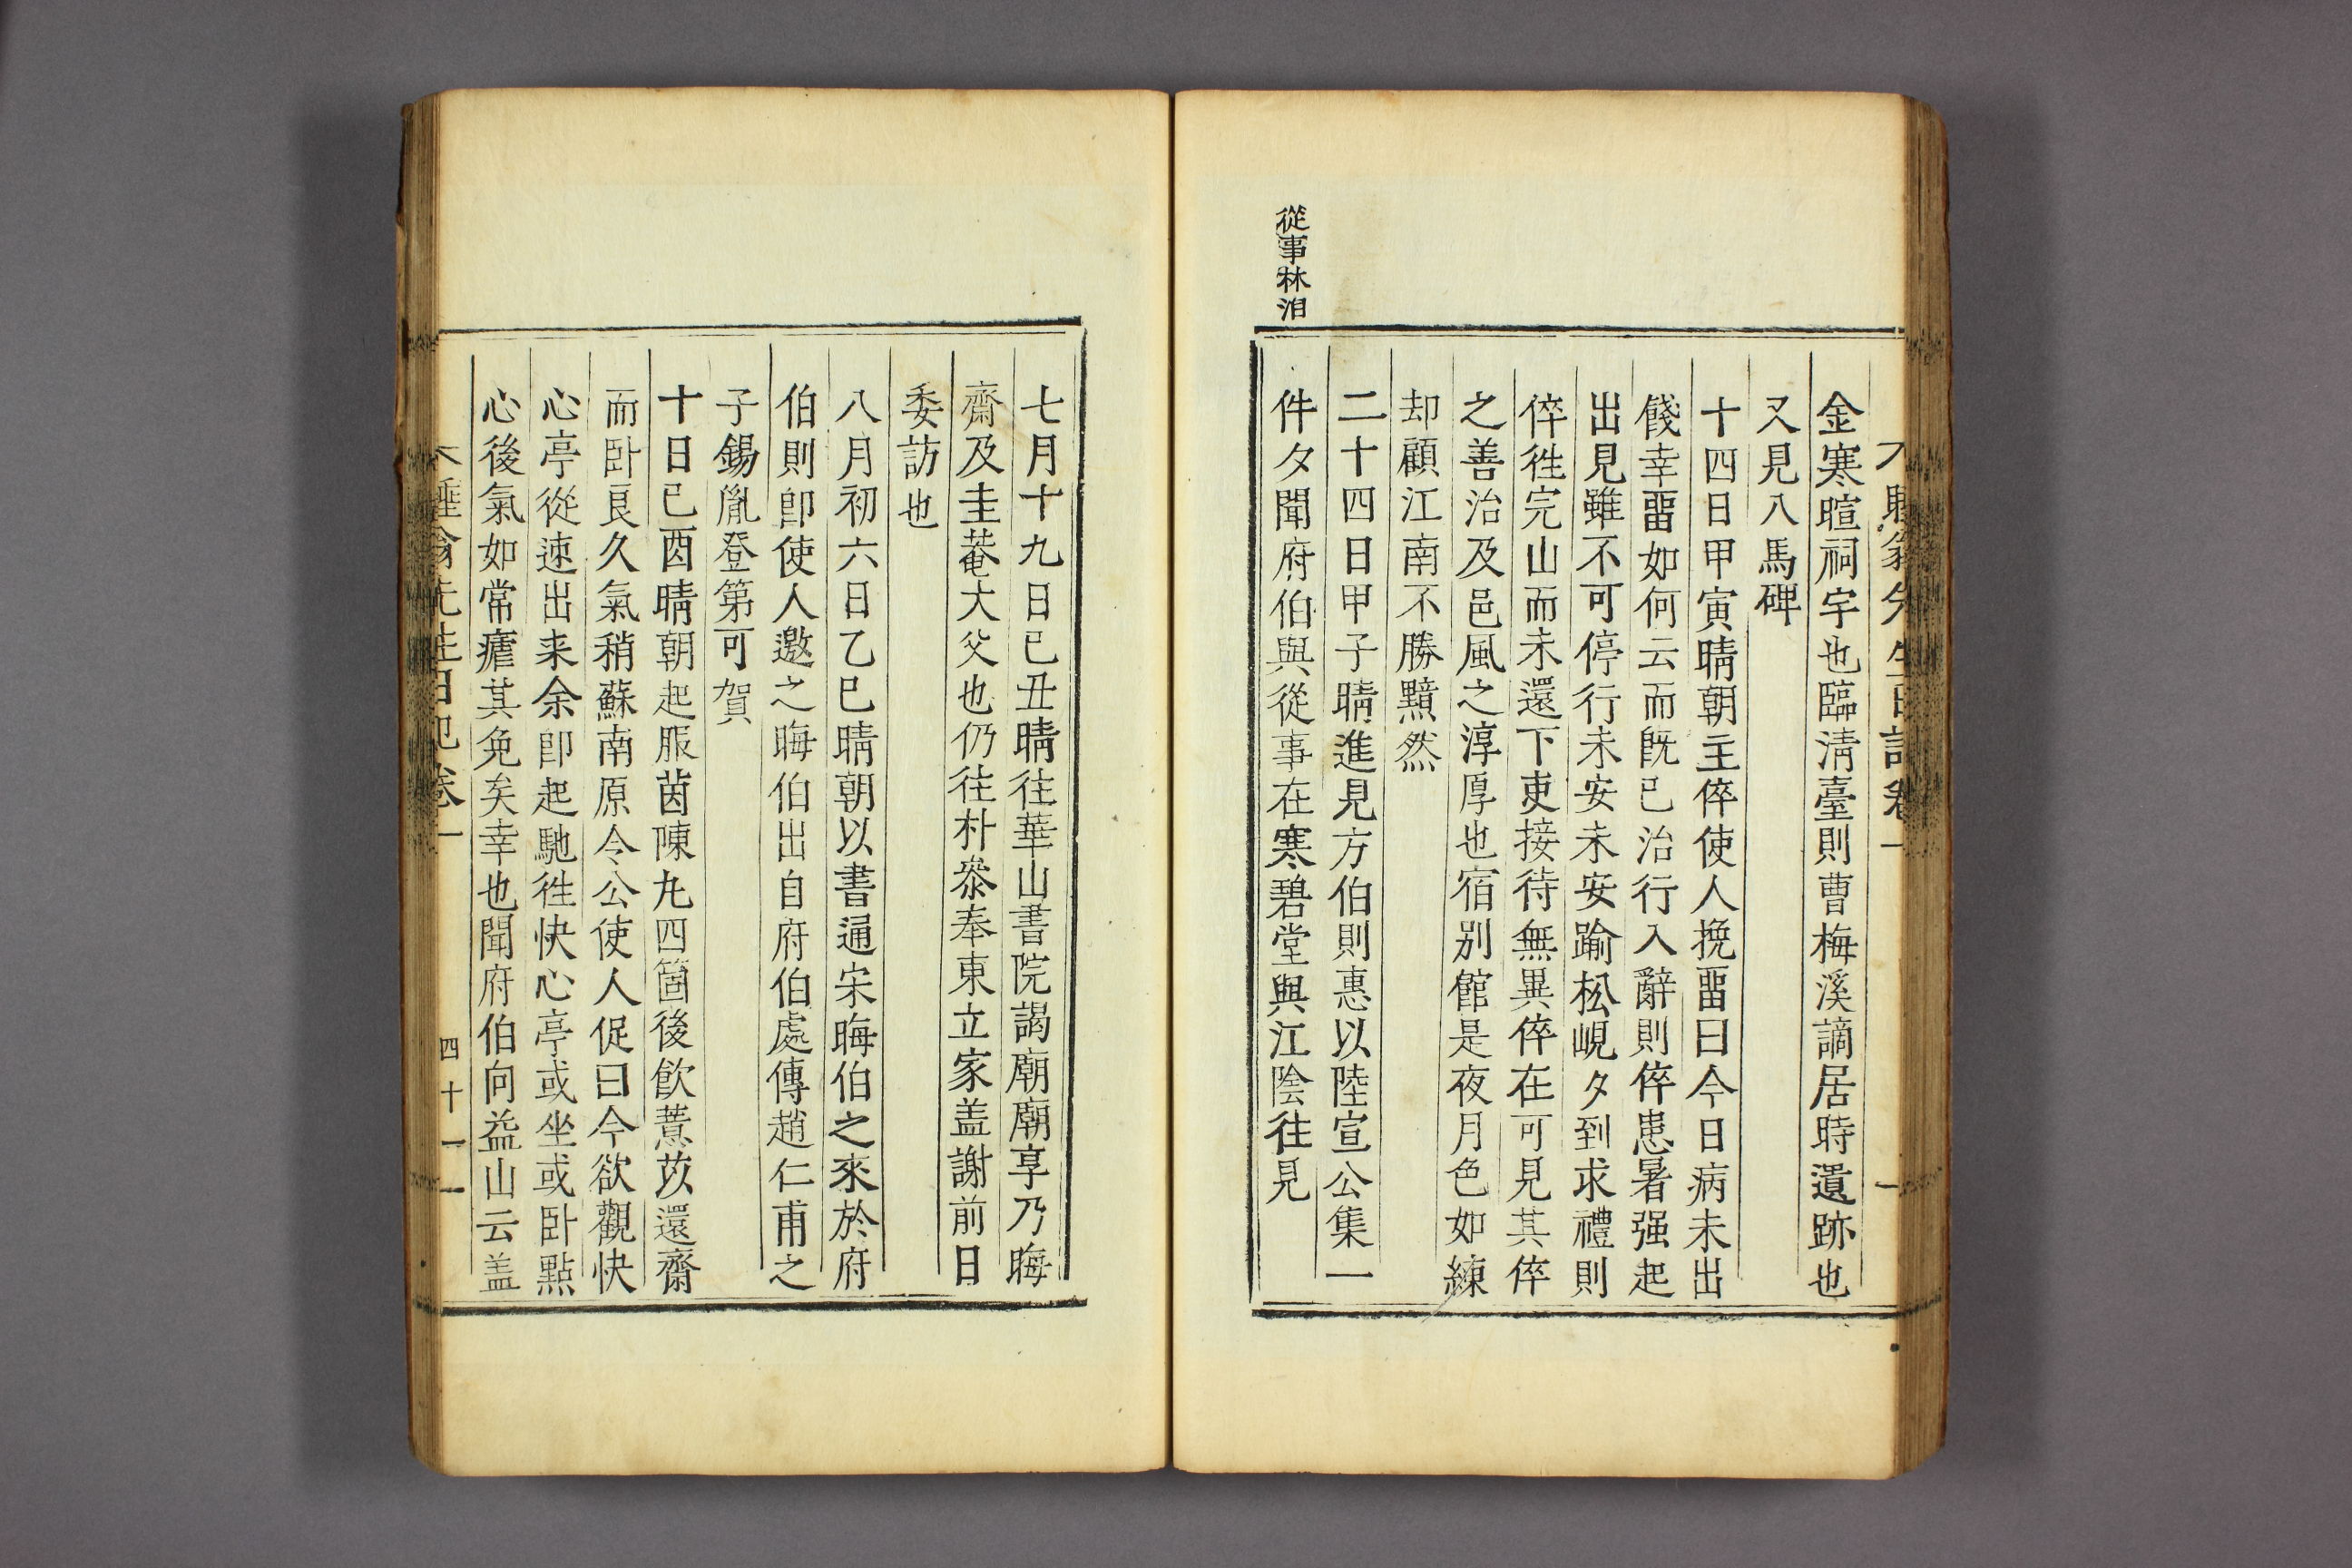 不睡翁先生日記卷一
金寒暄祠宇也臨淸臺則曹梅溪謫居時遺跡也
又見八馬碑
十四日甲寅晴朝主倅使人挽畱曰今日病未出
餞幸畱如何云而旣已治行入辭則倅患暑强起
出見雖不可停行未安未安踰松峴夕到求禮則
倅徃完山而未還下吏接待無異倅在可見其倅
之善治及邑風之淳厚也宿別館是夜月色如練
却顧江南不勝黯然
二十四日甲子晴進見方伯則惠以陸宣公集一
從事林泊
件夕聞府伯與從事在寒碧堂與江陰往見
七月十九日己丑晴往華山書院謁廟廟享乃晦
齋及圭菴大父也仍往朴叅奉東立家盖謝前日
委訪也
八月初六日乙巳晴朝以書通宋晦伯之來於府
伯則卽使人邀之晦伯出自府伯處傳趙仁甫之
子錫胤登第可賀
十日己酉晴朝起服茵陳丸四箇後飮薏苡還齋
而卧良久氣稍蘇南原令公使人促曰今欲觀快
心亭從速出来余卽起馳徃快心亭或坐或卧點
心後氣如常瘧其免矣幸也聞府伯向益山云盖
不睡翁先生日記卷一 四十一